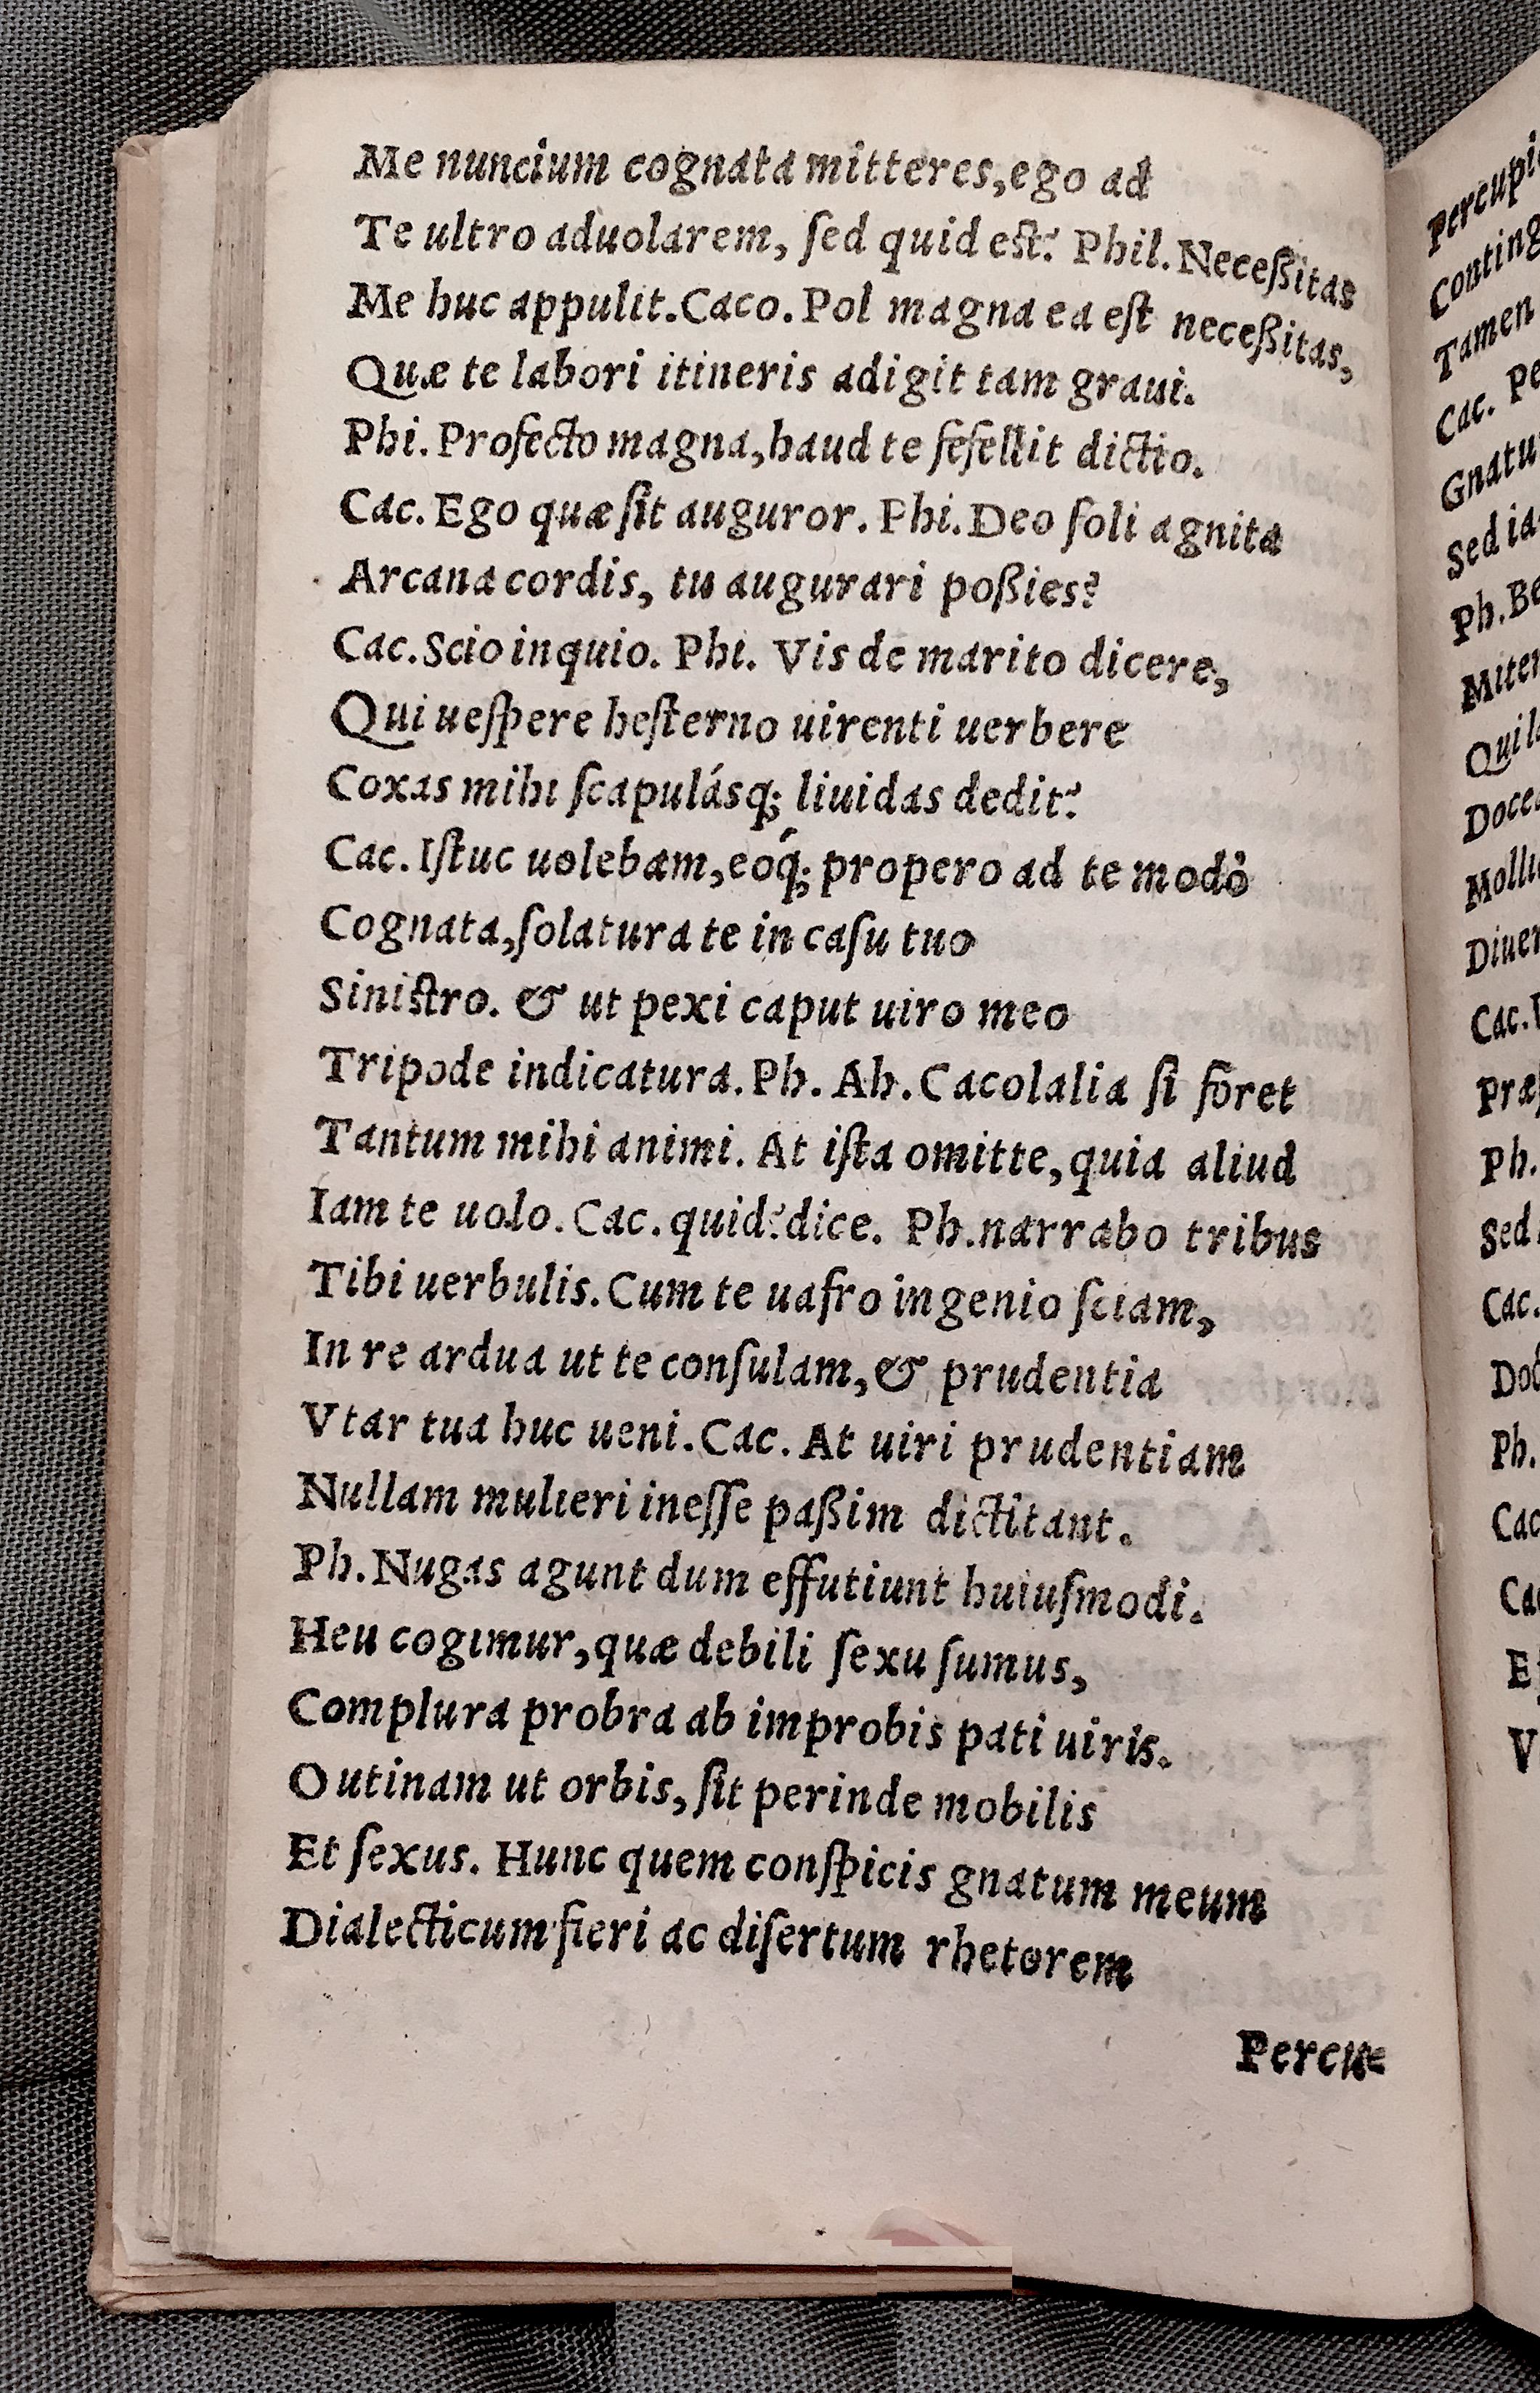 Me nuncium cognata mitteres, ego ad
Te ultro aduolarem, ſed quid eſt? Phil. Neceßitas
Me huc appulit. Caco. Pol magna ea eſt neceßitas,
Quæ te labori itineris adigit tam graui.
Phi. Profecto magna, haud te fefellit dictio.
Cac. Ego quæ ſit auguror. Phi. Deo ſoli agnita
Arcana cordis, tu augurari poßies?
Cac. Scio inquio. Phi. Vis de marito dicere,
Qui ueſpere heſterno uirenti uerbere
Coxas mihi ſcapulásq; liuidas dedit?
Cac. Iſtuc uolebam, eoq́; propero ad te modò
Cognata, ſolatura te in caſu tuo
Siniſtro. & ut pexi caput uiro meo
Tripode indicatura. Ph. Ah. Cacolalia ſi foret
Tantum mihi animi. At iſta omitte, quia aliud
Iam te uolo. Cac. quid? dice. Ph. narrabo tribus
Tibi uerbulis. Cum te uafro ingenio ſciam,
In re ardua ut te conſulam, & prudentia
Vtar tua huc ueni. Cac. At uiri prudentiam
Nullam mulieri ineſſe paßim dictitant.
Ph. Nugas agunt dum effutiunt huiuſmodi.
Heu cogimur, quæ debili ſexu ſumus,
Complura probra ab improbis pati uiris.
O utinam ut orbis, ſit perinde mobilis
Et ſexus. Hunc quem conſpicis gnatum meum
Dialecticum fieri ac diſertum rhetorem
Percu=
Conting
Tamen
Cac. Pe
Gnatu
Sed ia
Ph. Be
Qui l
Mollu
Diuer
Ph.
Sed
Cac.
Ph.
Cac
V